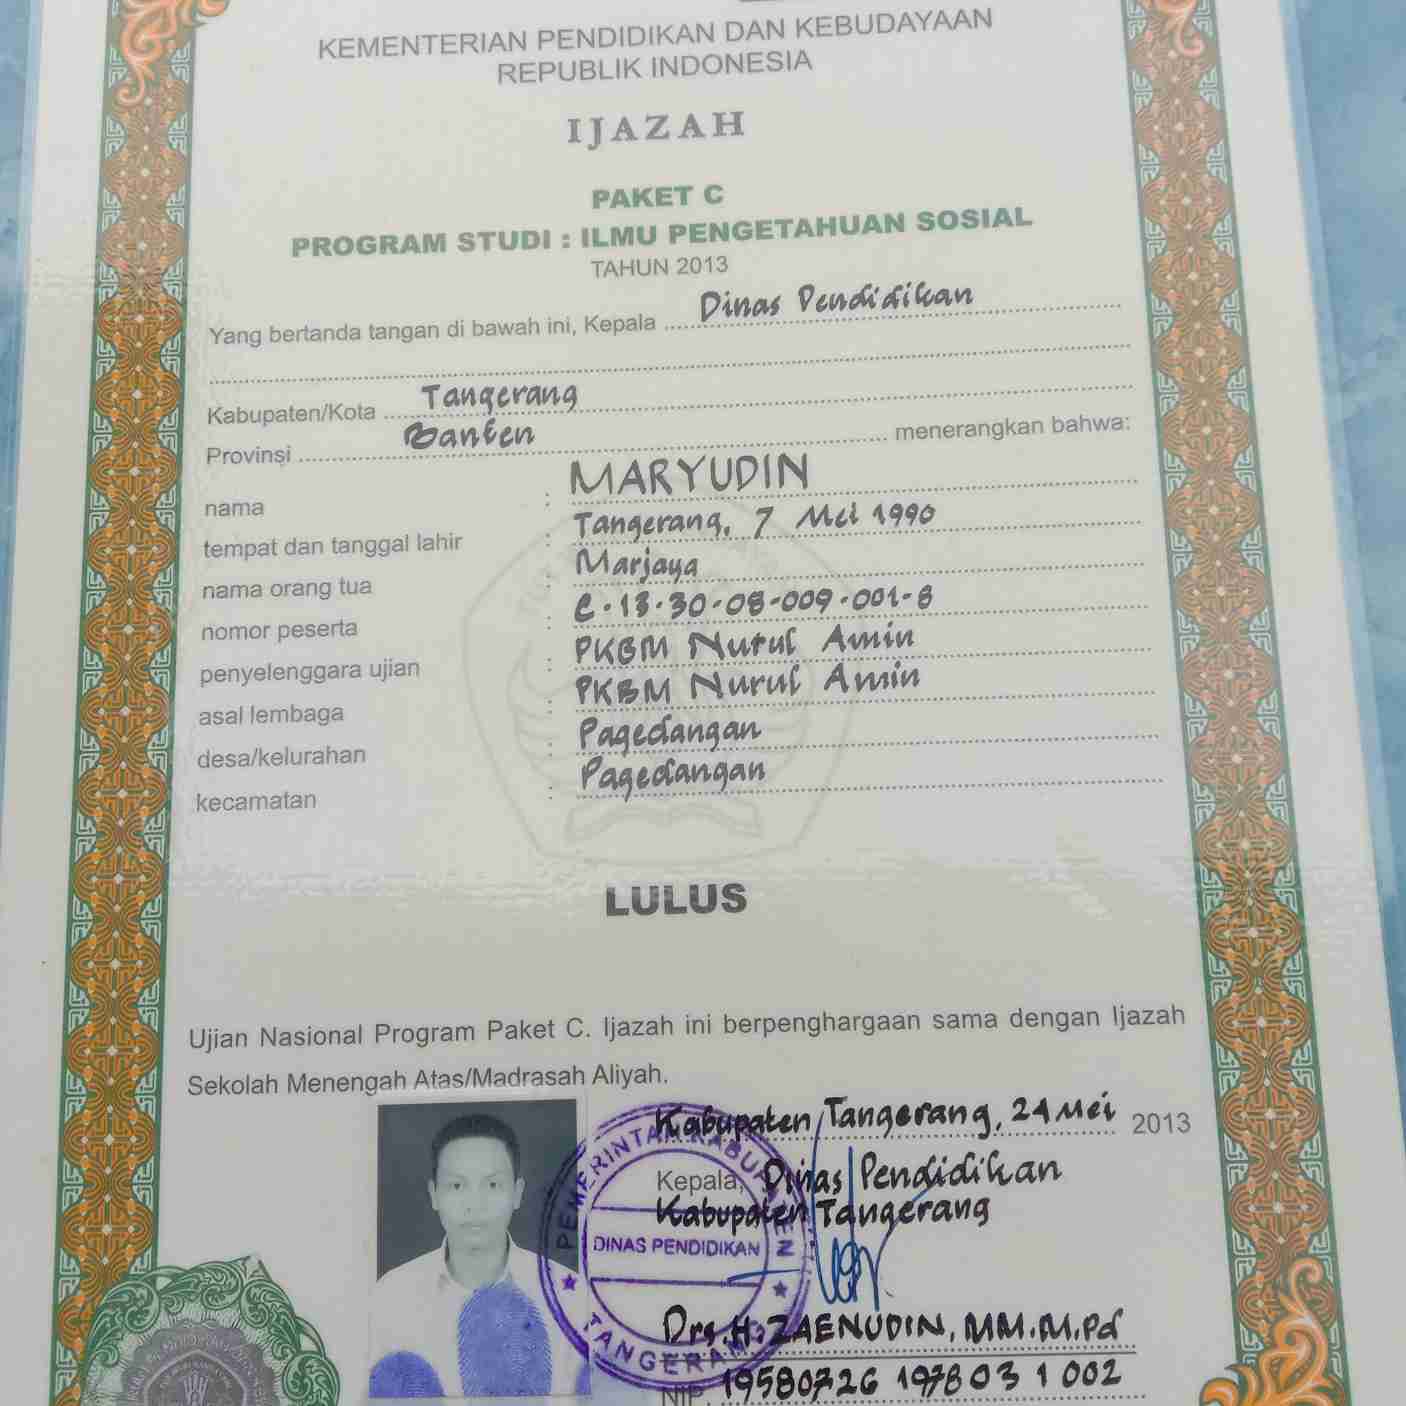 KEMENTERIAN PENDIDIKAN DAN KEBUDAYAAN
REPUBLIK INDONESIA
IJAZAH
PAKET C
PROGRAM STUDI : ILMU PENGETAHUAN SOSIAL
TAHUN 2013
Yang bertanda tangan di bawah ini, Kepala Dinas Pendidikan
Kabupaten/Kota Tangerang
Provinsi Banten menerangkan bahwa:
nama : MARYUDIN
tempat dan tanggal lahir : Tangerang, 7 Mei 1990
nama orang tua : Marjaya
nomor peserta : C-13-30-08-009-001-8
penyelenggara ujian : PKBM Nurul Amin
asal lembaga : PKBM Nurul Amin
desa/kelurahan : Pagedangan
kecamatan : Pagedangan
LULUS
Ujian Nasional Program Paket C. Ijazah ini berpenghargaan sama dengan Ijazah
Sekolah Menengah Atas/Madrasah Aliyah.
Kabupaten Tangerang, 24 Mei 2013
Kepala, Dinas Pendidikan
Kabupaten Tangerang
PEMERINTAH KABUPATEN
DINAS PENDIDIKAN
TANGERANG
Drs. H. ZAENUDIN, MM. M.Pd
NIP. 19580726 197803 1 002